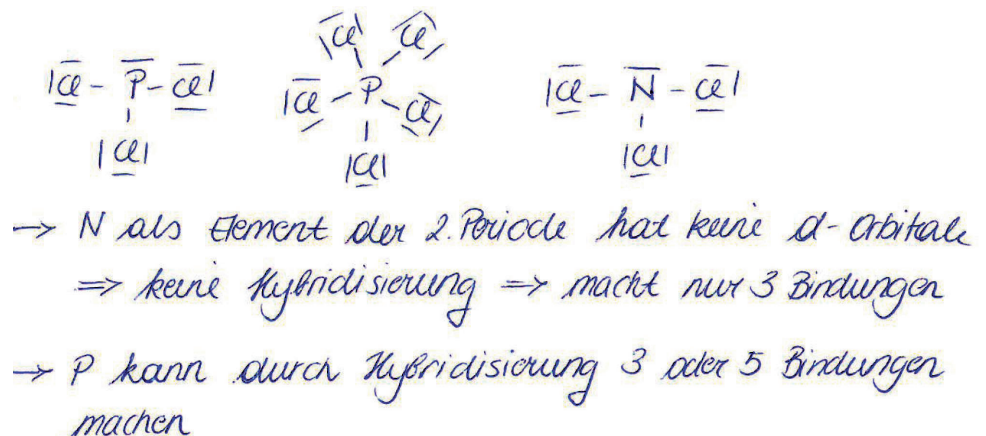 |Cl - P - Cl|
|Cl|
Cl Cl
Cl - P - Cl
|Cl|
|Cl - N - Cl|
|Cl|
→ N als Element der 2. Periode hat keine d-Orbitale
⇒ keine Hybridisierung ⇒ macht nur 3 Bindungen
→ P kann durch Hybridisierung 3 oder 5 Bindungen
machen